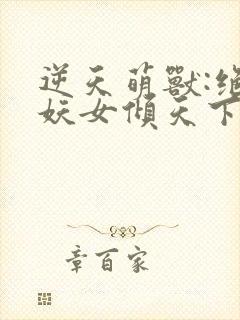 逆天萌獸:絕
妖女傾天下
章百家